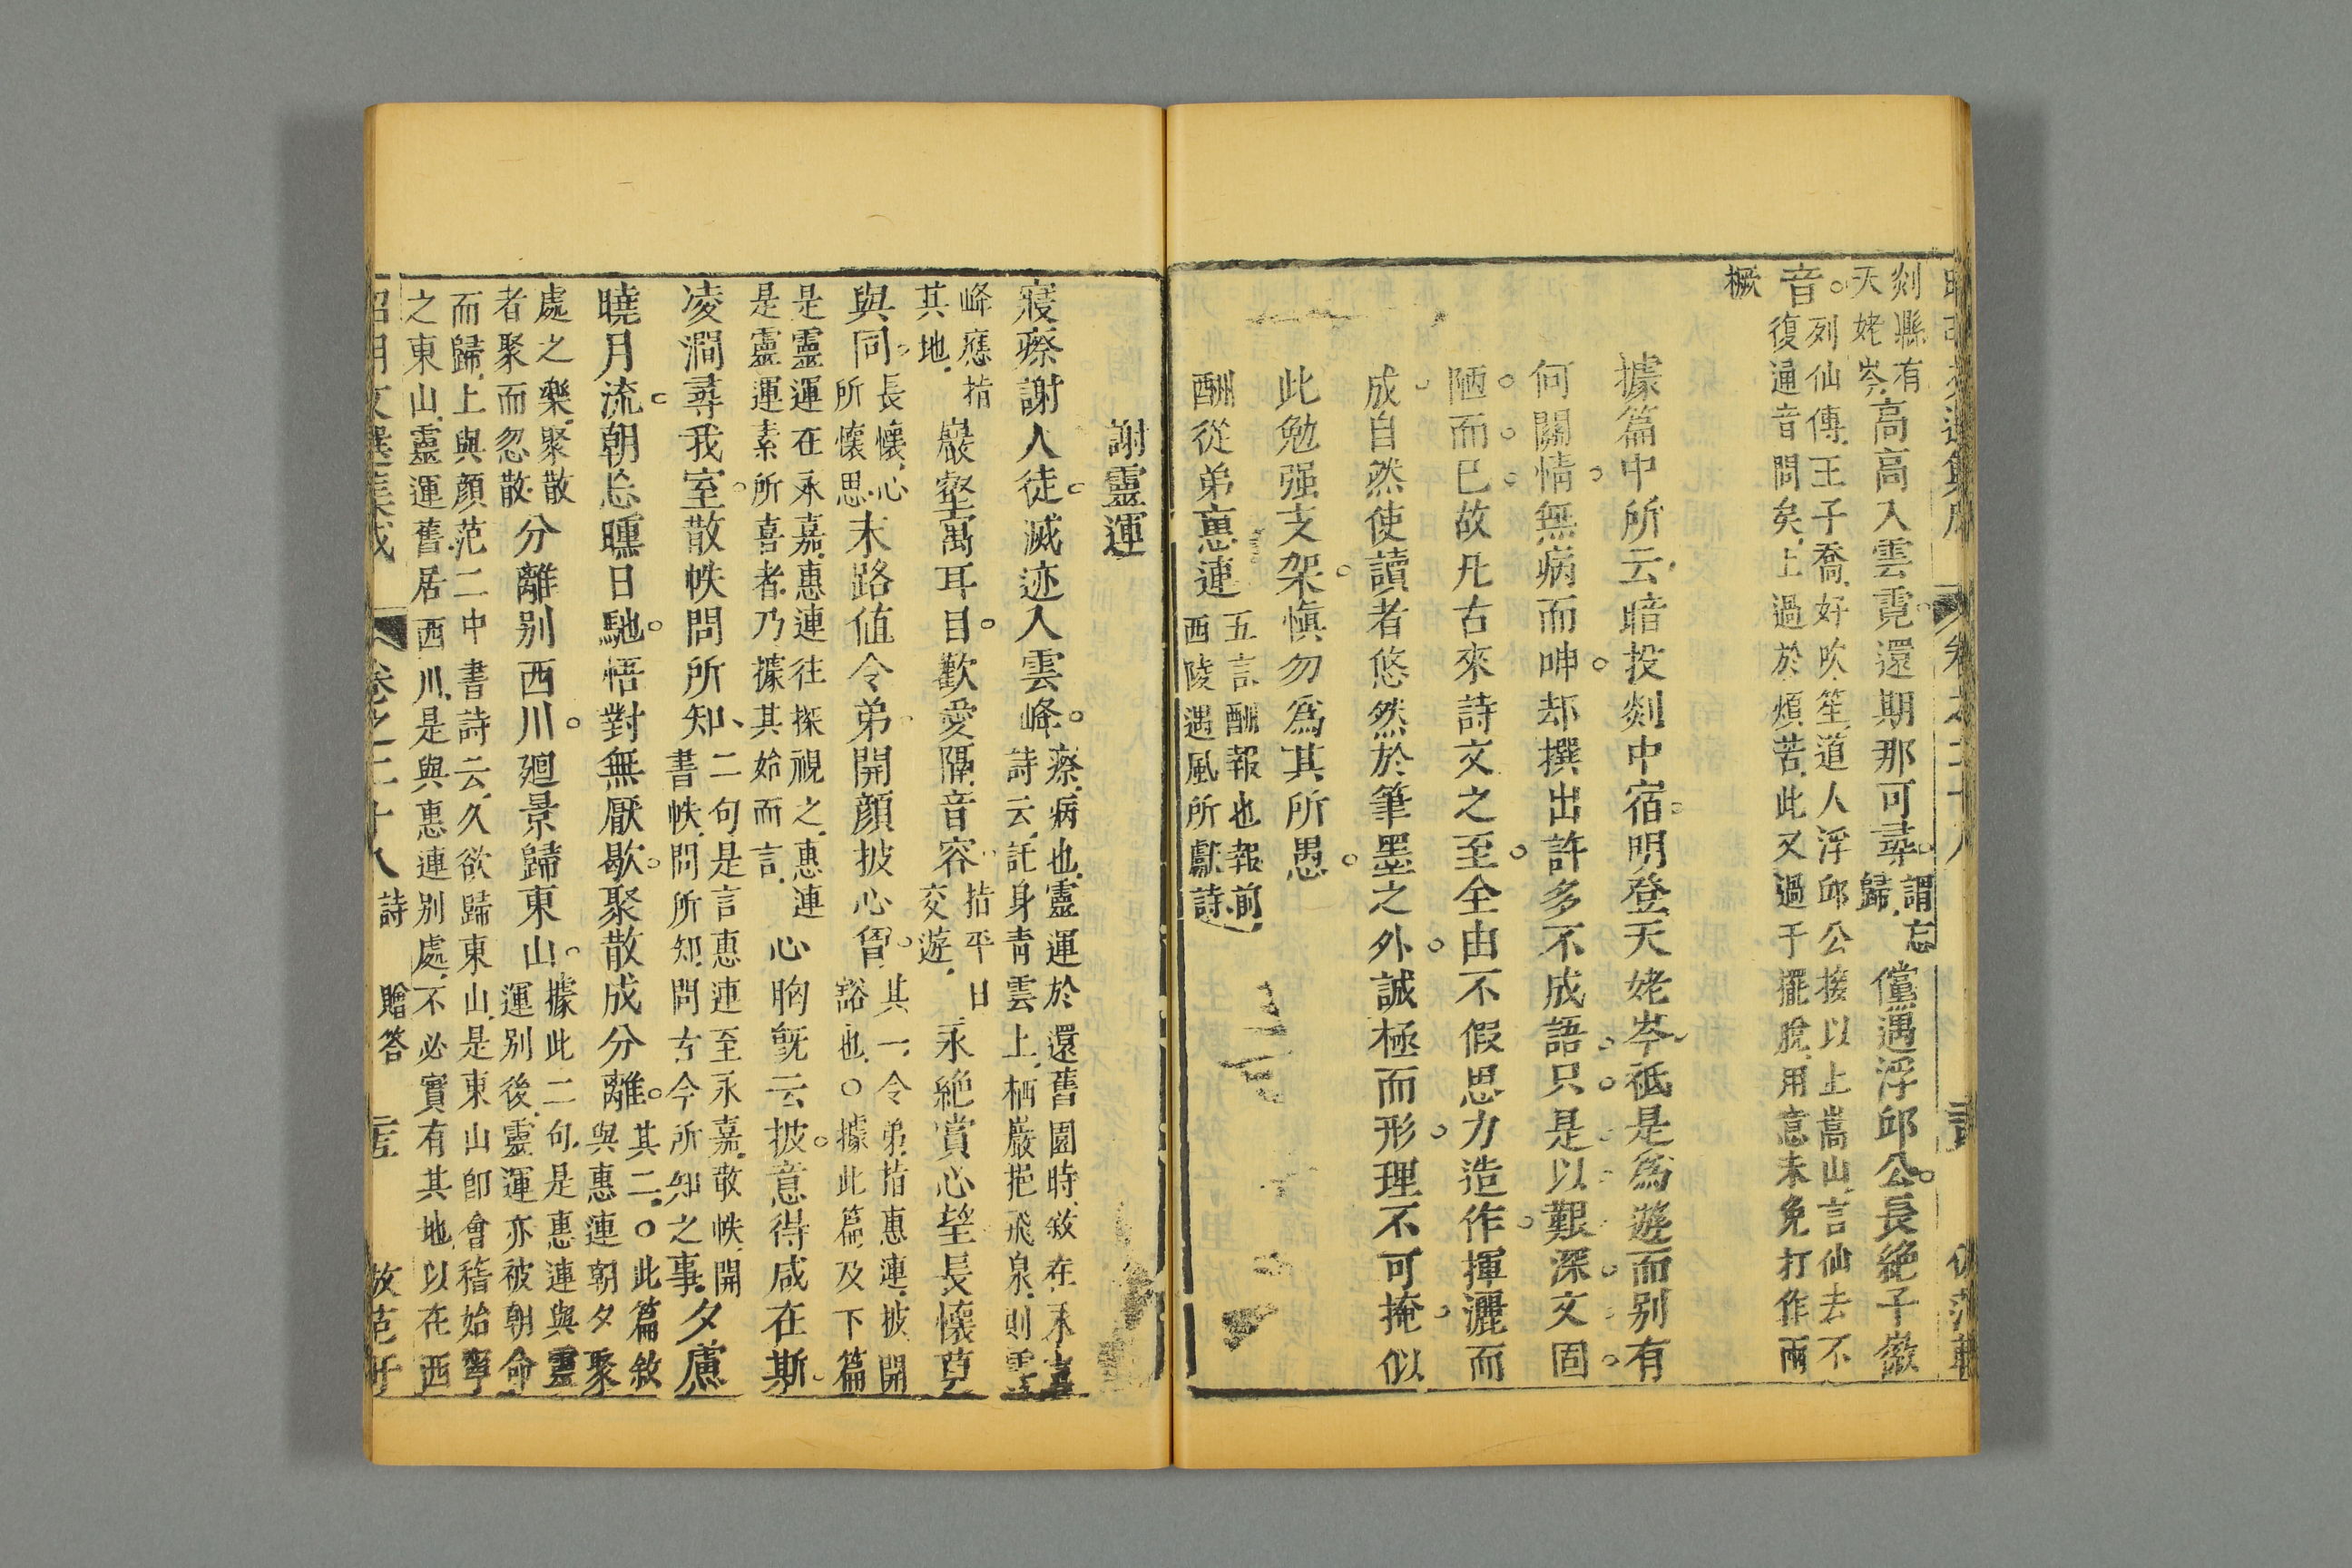 剡縣有
天姥岑
高高入雲霓還期那可尋
謂忘
歸
儻遇浮邱公長絶子徽
音
列仙傳王子喬好吹笙道人浮邱公接以上嵩山言仙去不
復通音問矣上過於煩苦此又過于擺脫用意未免打作兩
橛
據篇中所云暗投剡中宿明登天姥岑祇是爲遊而别有
何關情無病而呻却撰出許多不成語只是以艱深文固
陋而已故凡古來詩文之至全由不假思力造作揮灑而
成自然使讀者悠然於筆墨之外誠極而形理不可掩似
此勉强支架愼勿爲其所愚
酬從弟惠連
五言酬報也報前
西陵遇風所獻詩
謝靈運
寢瘵謝人徒滅迹入雲峰
瘵病也靈運於還舊園時敘在永嘉
詩云託身青雲上栖巖挹飛泉則雲
峰應指
其地
巖壑寓耳目歡愛隔音容
指平日
交遊
永絶賞心望長懷莫
與同
長懷心
所懷思
末路值令弟開顔披心胷
其一令弟指惠連披開
豁也○據此篇及下篇
是靈運在永嘉惠連往探視之惠連
是靈運素所喜者乃據其始而言
心胸旣云披意得咸在斯
凌澗尋我室散帙問所知
二句是言惠連至永嘉散帙開
書帙問所知問古今所知之事
夕慮
曉月流朝忌曛日馳悟對無厭歇聚散成分離
其二○此篇敘
與惠連朝夕聚
處之樂聚散
者聚而忽散
分離别西川廻景歸東山
據此二句是惠連與靈
運别後靈運亦被朝命
而歸上與顔范二中書詩云久欲歸東山是東山卽會稽始寧
之東山靈運舊居西川是與惠連别處不必實有其地以在西
卷之二十八 詩 贈答